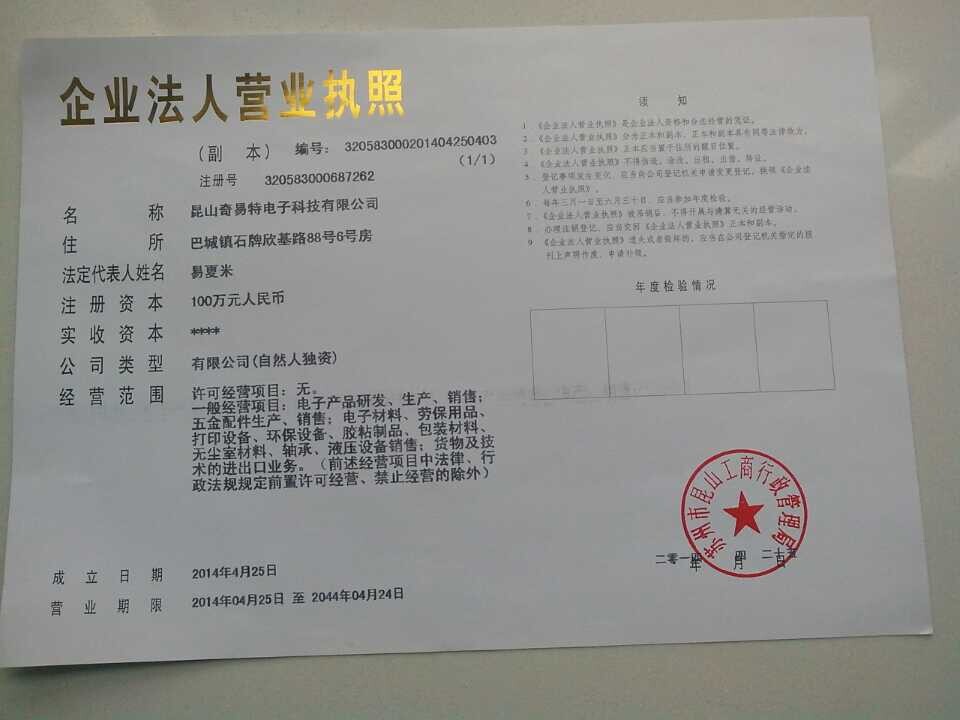 企业法人营业执照
（副 本） 编号： 320583000201404250403
（1/1）
注册号 320583000687262
名 称 昆山奇易特电子科技有限公司
住 所 巴城镇石牌欣基路88号6号房
法定代表人姓名 易夏米
注册资本 100万元人民币
实收资本 ****
公司类型 有限公司(自然人独资)
经营范围 许可经营项目：无。
一般经营项目：电子产品研发、生产、销售；
五金配件生产、销售；电子材料、劳保用品、
打印设备、环保设备、胶粘制品、包装材料、
无尘室材料、轴承、液压设备销售；货物及技
术的进出口业务。（前述经营项目中法律、行
政法规规定前置许可经营、禁止经营的除外）
成立日期 2014年4月25日
营业期限 2014年04月25日 至 2044年04月24日
须 知
1. 《企业法人营业执照》是企业法人资格和合法经营的凭证。
2. 《企业法人营业执照》分为正本和副本，正本和副本具有同等法律效力。
3. 《企业法人营业执照》正本应当置于住所的醒目位置。
4. 《企业法人营业执照》不得伪造、涂改、出租、出借、转让。
5. 登记事项发生变化，应当向公司登记机关申请变更登记，换领《企业法
人营业执照》。
6. 每年三月一日至六月三十日，应当参加年度检验。
7. 《企业法人营业执照》被吊销后，不得开展与清算无关的经营活动。
8. 办理注销登记，应当交回《企业法人营业执照》正本和副本。
9. 《企业法人营业执照》遗失或者毁坏的，应当在公司登记机关指定的报
刊上声明作废，申请补领。
年度检验情况
苏州市昆山工商行政管理局
二零一四 年 四 月 二十五 日